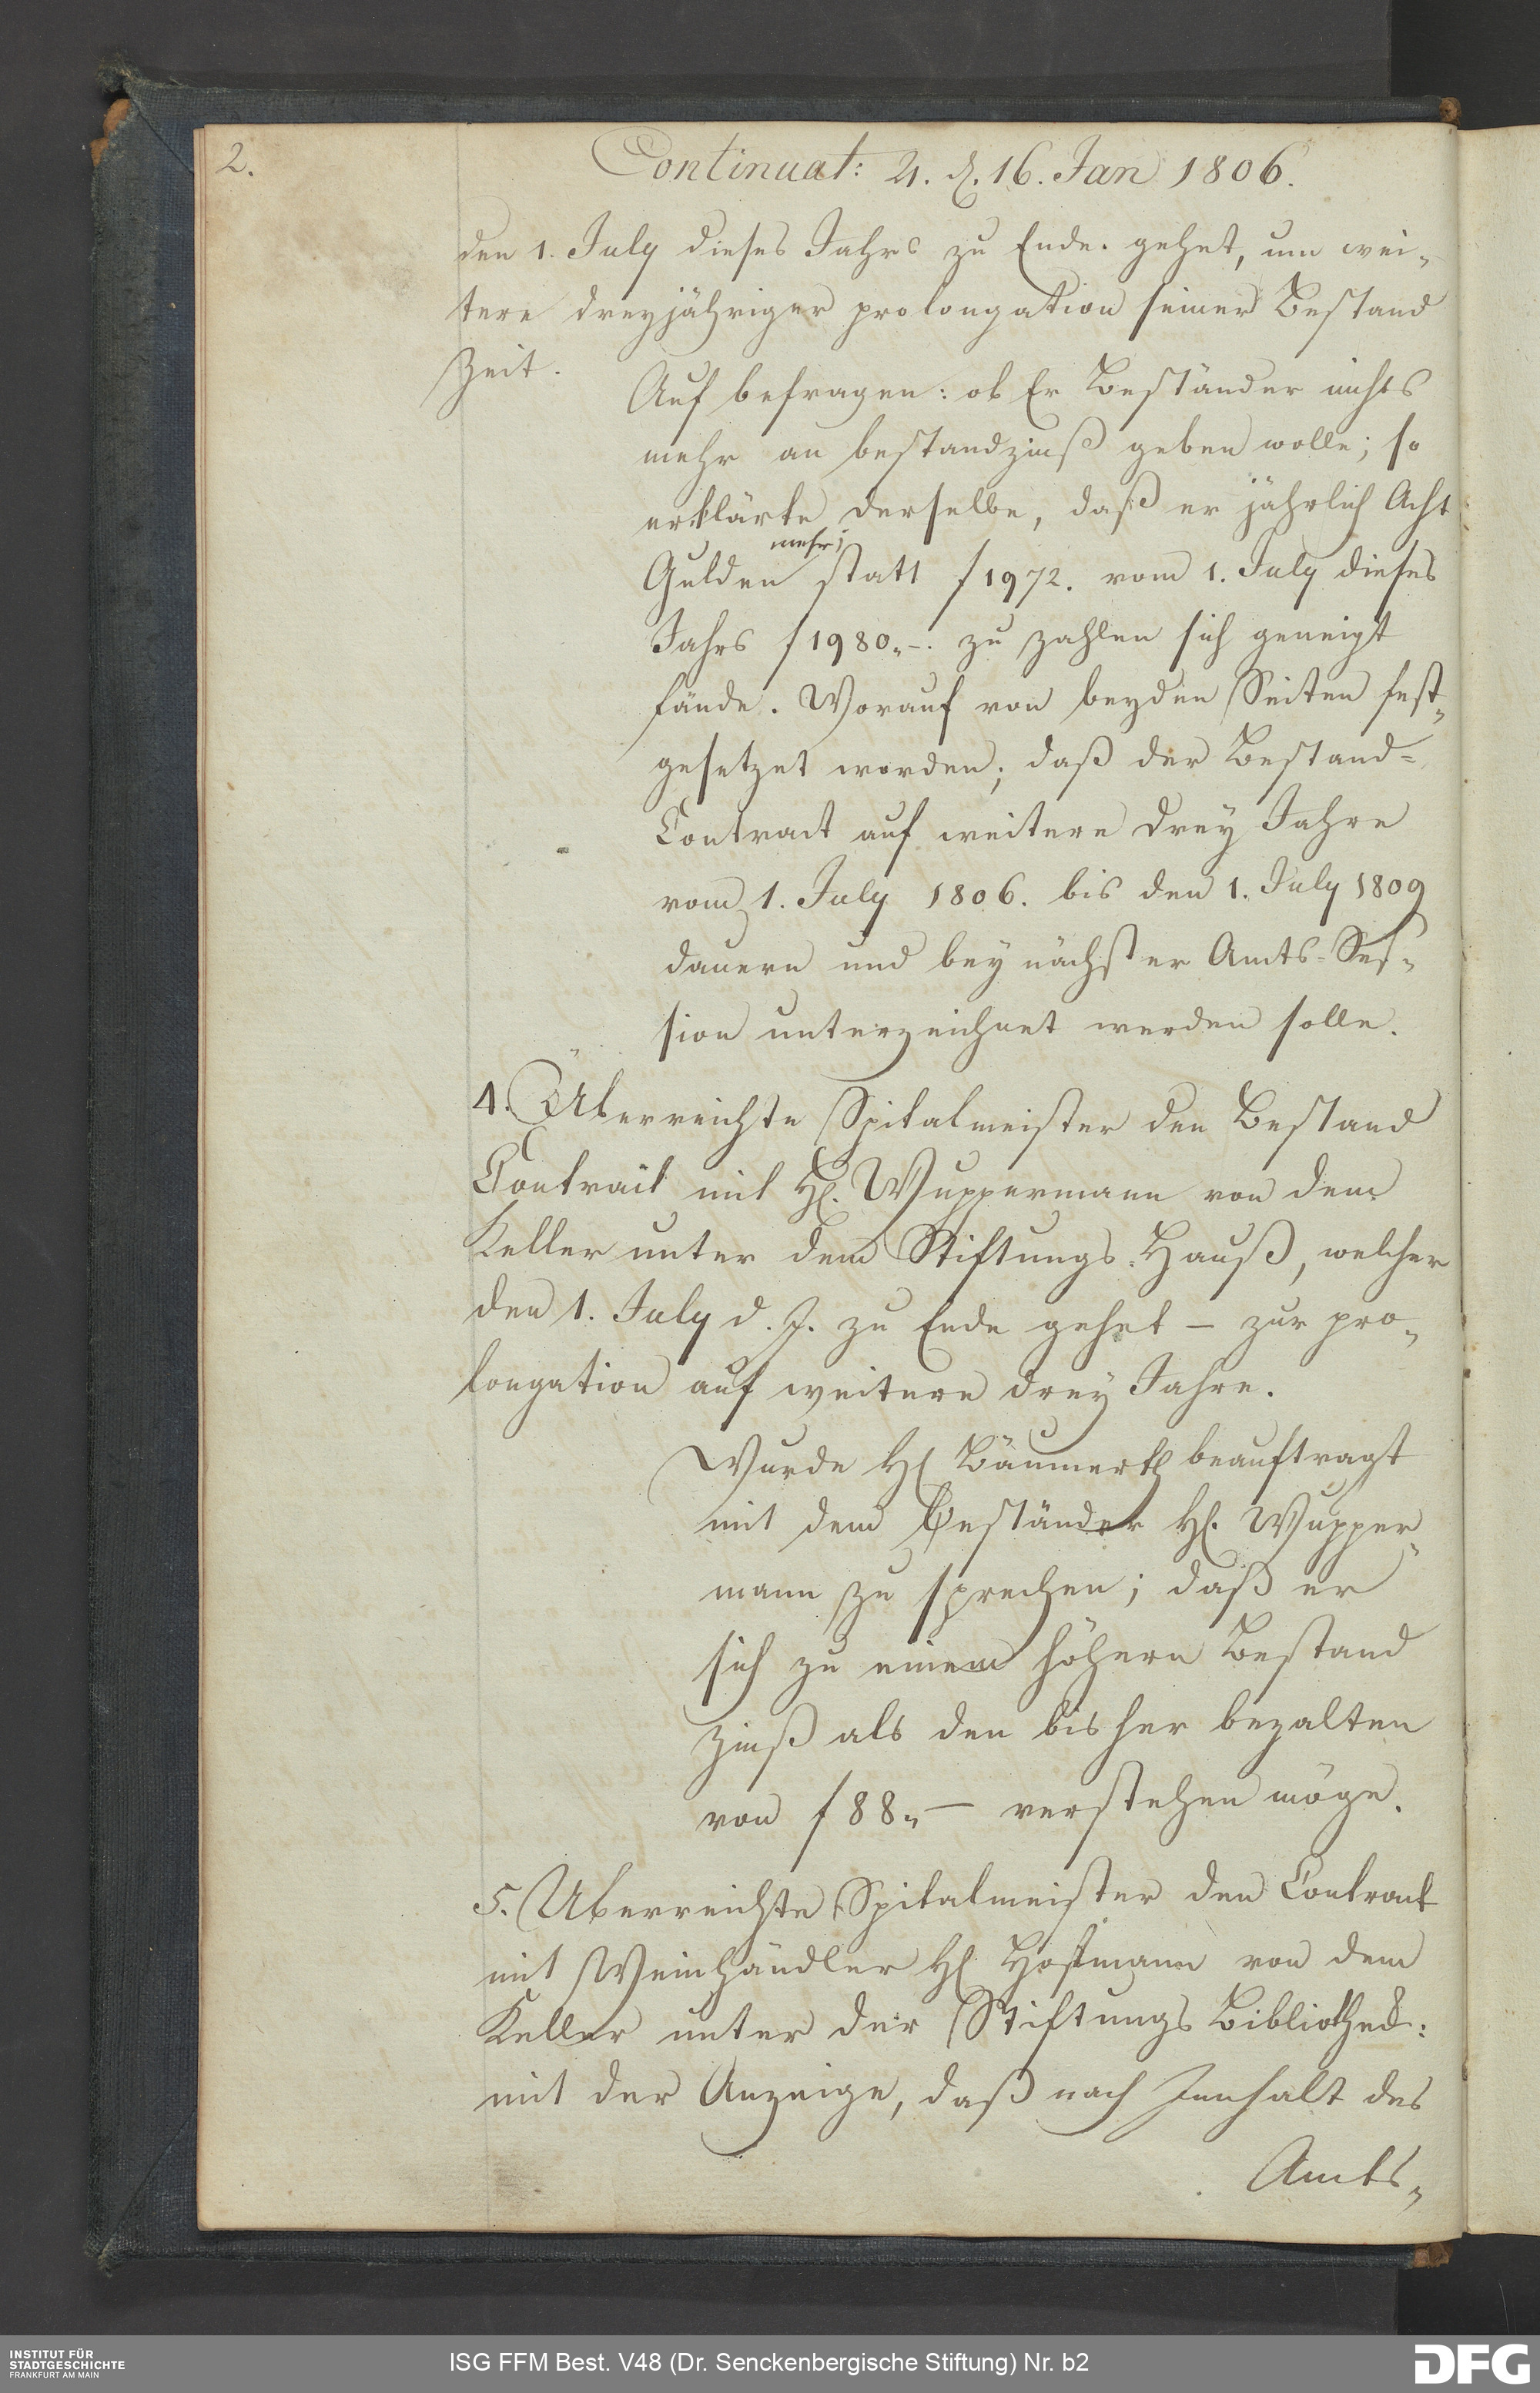 2.
Continuat: 21. d. 16. Jan 1806.
den 1. July dieses Jahrs zu Ende. gehet, um wei„
tere dreyjähriger prolongation seiner Bestand
Zeit.
Auf befragen: ob Er Beständer nichts
mehr an bestandzinß geben wolle; so
erklärte derselbe, daß er jährlich Acht
mehr;
Gulden statt f 1972. vom 1. July dieses
Jahrs f 1980„-. zu zahlen sich geneigt
fände. Worauf von beyden Seiten fest„
gesetzet worden; daß der Bestand=
Contract auf weitere drey Jahre
vom 1. July 1806. bis den 1. July 1809
dauern und bey nächster Amts=Ses„
sion unterzeichnet werden solle.
4. Überreichte Spitalmeister den Bestand
Contract mit H. Wuppermann von dem
Keller unter dem Stiftungs=Hauß, welcher
den 1. July d. J. zu Ende gehet – zur pro„
longation auf weitere drey Jahre.
Wurde H Bäumerth beauftragt
mit dem Beständer H. Wupper„
mann zu sprechen; daß er
sich zu einem höhern Bestand
zinß als den bisher bezalten
von f 88„— verstehen möge.
5. Uberreichte Spitalmeister den Contract
mit Weinhändler H Hoffmann von dem
Keller unter der Stiftungs Bibliotheck:
mit der Anzeige, daß nach Innhalt des
Amts„
INSTITUT FÜR
STADTGESCHICHTE
FRANKFURT AM MAIN
ISG FFM Best. V48 (Dr. Senckenbergische Stiftung) Nr. b2
DFG